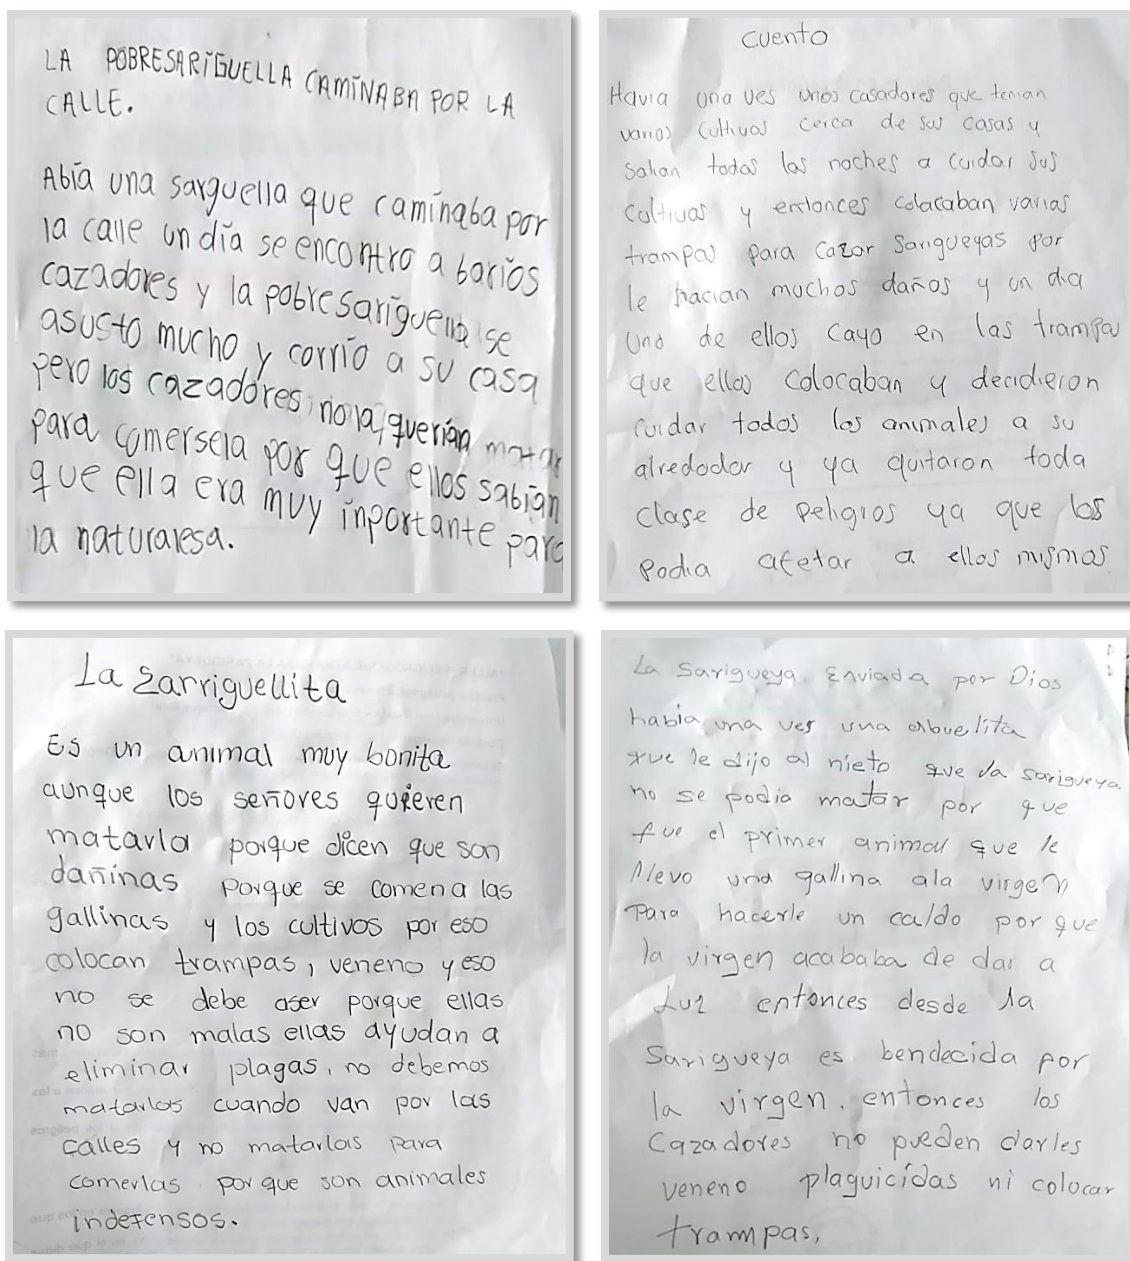 LA POBRESARIGUELLA CAMINABA POR LA
CALLE.
Abia una sarguella que caminaba por
la calle un día se encontro a barios
cazadores y la pobresariguella se
asusto mucho y corrio a su casa
pero los cazadores no la querian matar
para comersela por que ellos sabian
que ella era muy inportante para
la naturalesa.
cuento
Havia una ves unos casadores que tenian
varios cultivos cerca de sus casas y
salian todas las noches a cuidar sus
cultivos y entonces colacaban varias
trampas para cazar sarigueyas por
le hacian muchos daños y un dia
uno de ellos cayo en las trampa
que ellos colocaban y decidieron
cuidar todos los animales a su
alrededor y ya quitaron toda
clase de peligros ya que los
podia afetar a ellos mismos
La Zarriguellita
Es un animal muy bonita
aunque los señores quieren
matarla porque dicen que son
dañinas porque se comen a las
gallinas y los cultivos por eso
colocan trampas, veneno y eso
no se debe aser porque ellas
no son malas ellas ayudan a
eliminar plagas, no debemos
matarlas cuando van por las
calles y no matarlas para
comerlas por que son animales
indefensos.
La Sarigueya Enviada por Dios
había una ves una abuelita
que le dijo al nieto que la sarigueya
no se podia matar por que
fue el primer animal que le
llevo una gallina ala virgen
Para hacerle un caldo por que
la virgen acababa de dar a
Luz entonces desde la
Sarigueya es bendecida por
la virgen. entonces los
Cazadores no pueden darles
veneno plaguicidas ni colocar
trampas,